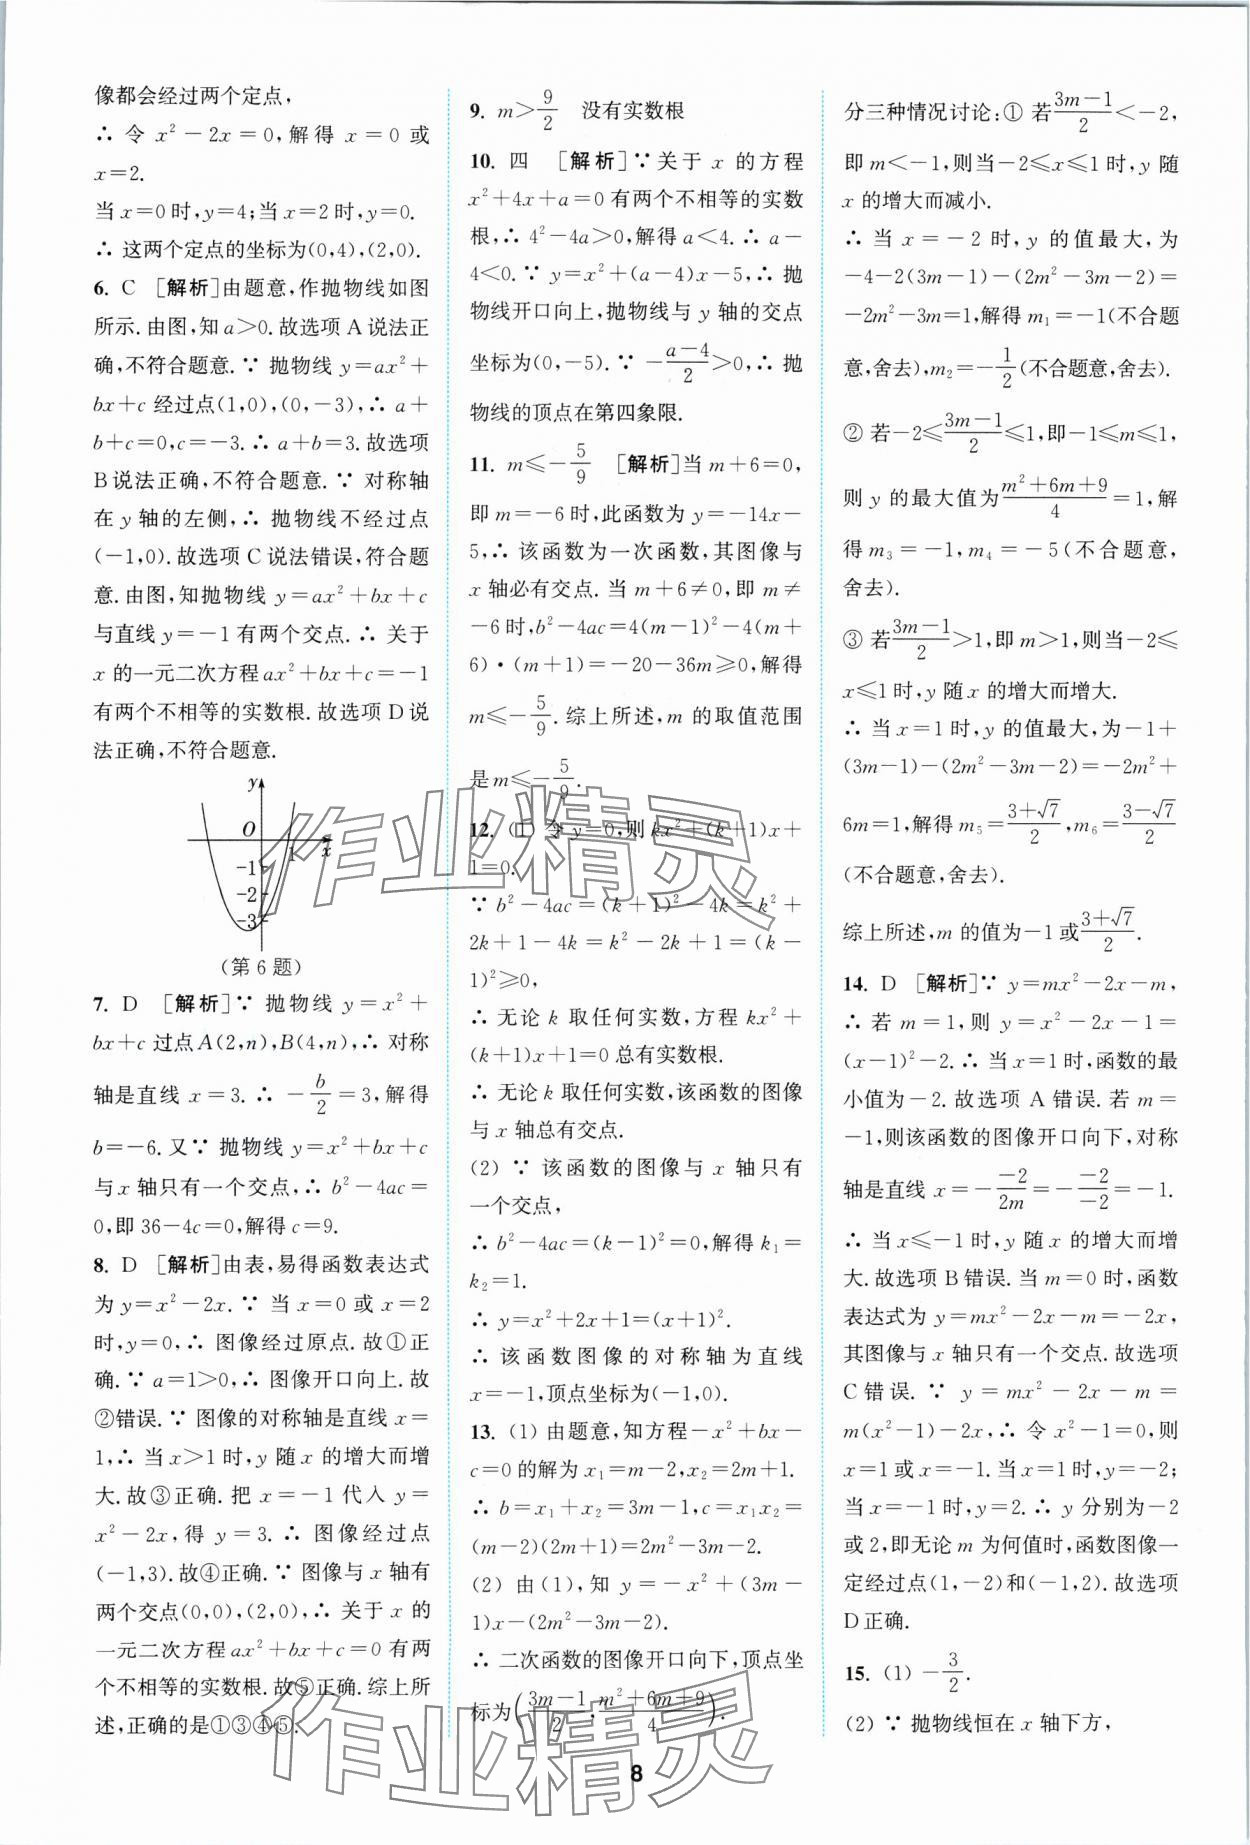 像都会经过两个定点,
∴ 令 x²－2x＝0,解得 x＝0 或
x＝2.
当 x＝0 时,y＝4;当 x＝2 时,y＝0.
∴ 这两个定点的坐标为(0,4),(2,0).
6. C [解析]由题意,作抛物线如图
所示. 由图,知 a＞0. 故选项 A 说法正
确,不符合题意. ∵ 抛物线 y＝ax²＋
bx＋c 经过点(1,0),(0,－3),∴ a＋
b＋c＝0,c＝－3. ∴ a＋b＝3. 故选项
B 说法正确,不符合题意. ∵ 对称轴
在 y 轴的左侧,∴ 抛物线不经过点
(－1,0). 故选项 C 说法错误,符合题
意. 由图,知抛物线 y＝ax²＋bx＋c
与直线 y＝－1 有两个交点. ∴ 关于
x 的一元二次方程 ax²＋bx＋c＝－1
有两个不相等的实数根. 故选项 D 说
法正确,不符合题意.
y
O
1 x
－1
－2
－3
(第 6 题)
7. D [解析]∵ 抛物线 y＝x²＋
bx＋c 过点 A(2,n),B(4,n),∴ 对称
轴是直线 x＝3. ∴ －b/2＝3,解得
b＝－6. 又∵ 抛物线 y＝x²＋bx＋c
与 x 轴只有一个交点,∴ b²－4ac＝
0,即 36－4c＝0,解得 c＝9.
8. D [解析]由表,易得函数表达式
为 y＝x²－2x. ∵ 当 x＝0 或 x＝2
时,y＝0,∴ 图像经过原点. 故①正
确. ∵ a＝1＞0,∴ 图像开口向上. 故
②错误. ∵ 图像的对称轴是直线 x＝
1,∴ 当 x＞1 时,y 随 x 的增大而增
大. 故③正确. 把 x＝－1 代入 y＝
x²－2x,得 y＝3. ∴ 图像经过点
(－1,3). 故④正确. ∵ 图像与 x 轴有
两个交点(0,0),(2,0),∴ 关于 x 的
一元二次方程 ax²＋bx＋c＝0 有两
个不相等的实数根. 故⑤正确. 综上所
述,正确的是①③④⑤.
9. m＞9/2 没有实数根
10. 四 [解析]∵ 关于 x 的方程
x²＋4x＋a＝0 有两个不相等的实数
根,∴ 4²－4a＞0,解得 a＜4. ∴ a－
4＜0. ∵ y＝x²＋(a－4)x－5,∴ 抛
物线开口向上,抛物线与 y 轴的交点
坐标为(0,－5). ∵ －(a－4)/2＞0,∴ 抛
物线的顶点在第四象限.
11. m≤－5/9 [解析]当 m＋6＝0,
即 m＝－6 时,此函数为 y＝－14x－
5,∴ 该函数为一次函数,其图像与
x 轴必有交点. 当 m＋6≠0,即 m≠
－6 时,b²－4ac＝4(m－1)²－4(m＋
6)·(m＋1)＝－20－36m≥0,解得
m≤－5/9. 综上所述,m 的取值范围
是 m≤－5/9.
12. (1) 令 y＝0,则 kx²＋(k＋1)x＋
1＝0.
∵ b²－4ac＝(k＋1)²－4k＝k²＋
2k＋1－4k＝k²－2k＋1＝(k－
1)²≥0,
∴ 无论 k 取任何实数,方程 kx²＋
(k＋1)x＋1＝0 总有实数根.
∴ 无论 k 取任何实数,该函数的图像
与 x 轴总有交点.
(2) ∵ 该函数的图像与 x 轴只有
一个交点,
∴ b²－4ac＝(k－1)²＝0,解得 k₁＝
k₂＝1.
∴ y＝x²＋2x＋1＝(x＋1)².
∴ 该函数图像的对称轴为直线
x＝－1,顶点坐标为(－1,0).
13. (1) 由题意,知方程－x²＋bx－
c＝0 的解为 x₁＝m－2,x₂＝2m＋1.
∴ b＝x₁＋x₂＝3m－1,c＝x₁x₂＝
(m－2)(2m＋1)＝2m²－3m－2.
(2) 由(1),知 y＝－x²＋(3m－
1)x－(2m²－3m－2).
∴ 二次函数的图像开口向下,顶点坐
标为((3m－1)/2,(m²＋6m＋9)/4).
分三种情况讨论:① 若(3m－1)/2＜－2,
即 m＜－1,则当－2≤x≤1 时,y 随
x 的增大而减小.
∴ 当 x＝－2 时,y 的值最大,为
－4－2(3m－1)－(2m²－3m－2)＝
－2m²－3m＝1,解得 m₁＝－1(不合题
意,舍去),m₂＝－1/2(不合题意,舍去).
② 若－2≤(3m－1)/2≤1,即－1≤m≤1,
则 y 的最大值为(m²＋6m＋9)/4＝1,解
得 m₃＝－1,m₄＝－5(不合题意,
舍去).
③ 若(3m－1)/2＞1,即 m＞1,则当－2≤
x≤1 时,y 随 x 的增大而增大.
∴ 当 x＝1 时,y 的值最大,为－1＋
(3m－1)－(2m²－3m－2)＝－2m²＋
6m＝1,解得 m₅＝(3＋√7)/2,m₆＝(3－√7)/2
(不合题意,舍去).
综上所述,m 的值为－1 或(3＋√7)/2.
14. D [解析]∵ y＝mx²－2x－m,
∴ 若 m＝1,则 y＝x²－2x－1＝
(x－1)²－2. ∴ 当 x＝1 时,函数的最
小值为－2. 故选项 A 错误. 若 m＝
－1,则该函数的图像开口向下,对称
轴是直线 x＝－(－2)/(2m)＝－(－2)/(－2)＝－1.
∴ 当 x≤－1 时,y 随 x 的增大而增
大. 故选项 B 错误. 当 m＝0 时,函数
表达式为 y＝mx²－2x－m＝－2x,
其图像与 x 轴只有一个交点. 故选项
C 错误. ∵ y＝mx²－2x－m＝
m(x²－1)－2x,∴ 令 x²－1＝0,则
x＝1 或 x＝－1. 当 x＝1 时,y＝－2;
当 x＝－1 时,y＝2. ∴ y 分别为－2
或 2,即无论 m 为何值时,函数图像一
定经过点(1,－2)和(－1,2). 故选项
D 正确.
15. (1) －3/2.
(2) ∵ 抛物线恒在 x 轴下方,
8
作业精灵
作业精灵